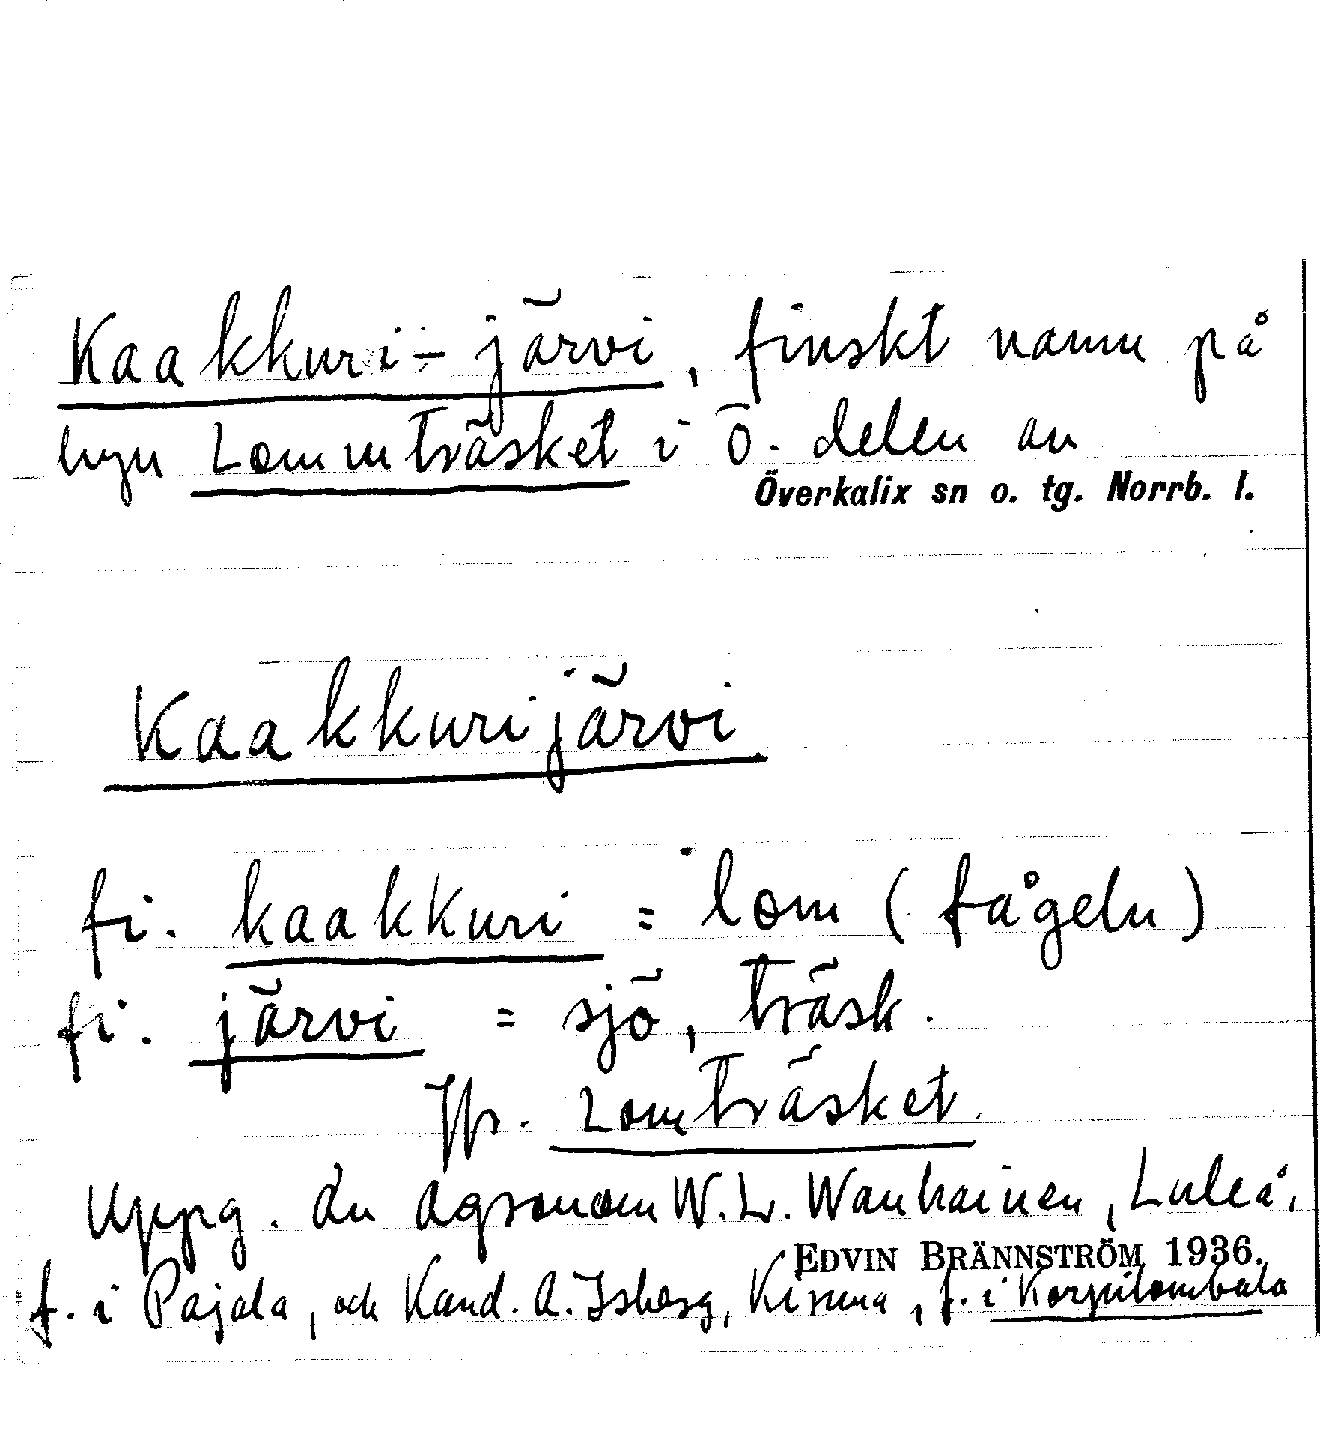 Kaakkuri-järvi, finskt namn på
byn Lommträsket i ö. delen av
Överkalix sn o. tg. Norrb. l.
Kaakkurijärvi
fi. kaakkuri = lom (fågeln)
fi. järvi = sjö, träsk.
Jfr. Lomträsket.
Uppg. av Agronom W. L. Wanhainen, Luleå,
EDVIN BRÄNNSTRÖM 1936.
f. i Pajala, och Kand. A. Isberg, Kiruna, f. i Korpilombolo